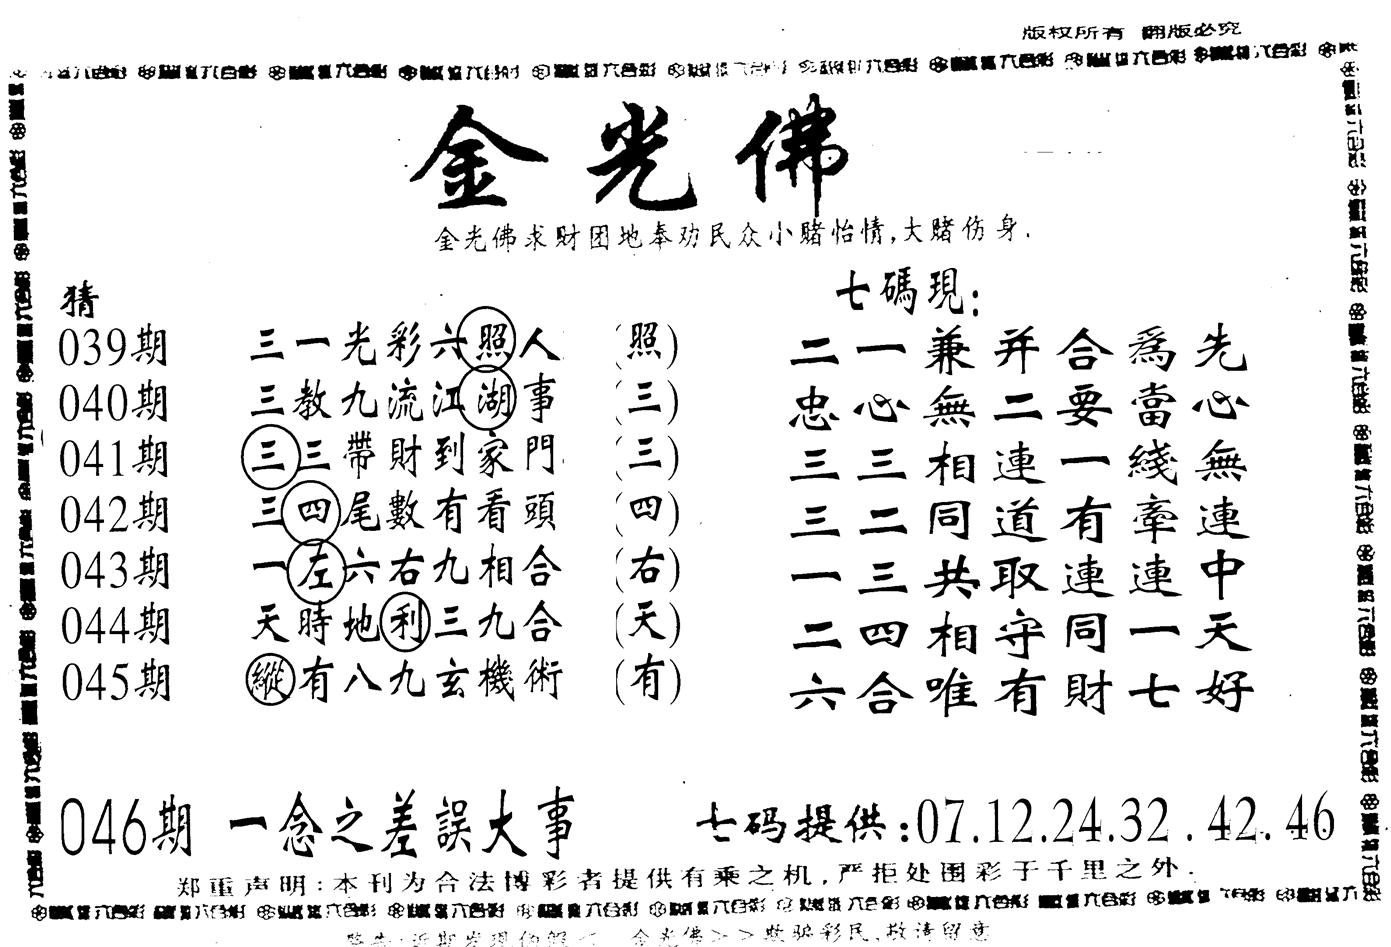 版权所有 翻版必究
金光佛
金光佛求财团地奉劝民众小赌怡情,大赌伤身.
猜
七碼現:
039期 三一光彩六照人 (照) 二一兼并合爲先
040期 三教九流江湖事 (三) 忠心無二要當心
041期 三三帶財到家門 (三) 三三相連一綫無
042期 三四尾數有看頭 (四) 三二同道有牽連
043期 一左六右九相合 (右) 一三共取連連中
044期 天時地利三九合 (天) 二四相守同一天
045期 縱有八九玄機術 (有) 六合唯有財七好
046期 一念之差誤大事 七码提供:07.12.24.32.42.46
郑重声明:本刊为合法博彩者提供有乘之机,严拒处围彩于千里之外.
金光佛 欺骗彩民,敬请留意